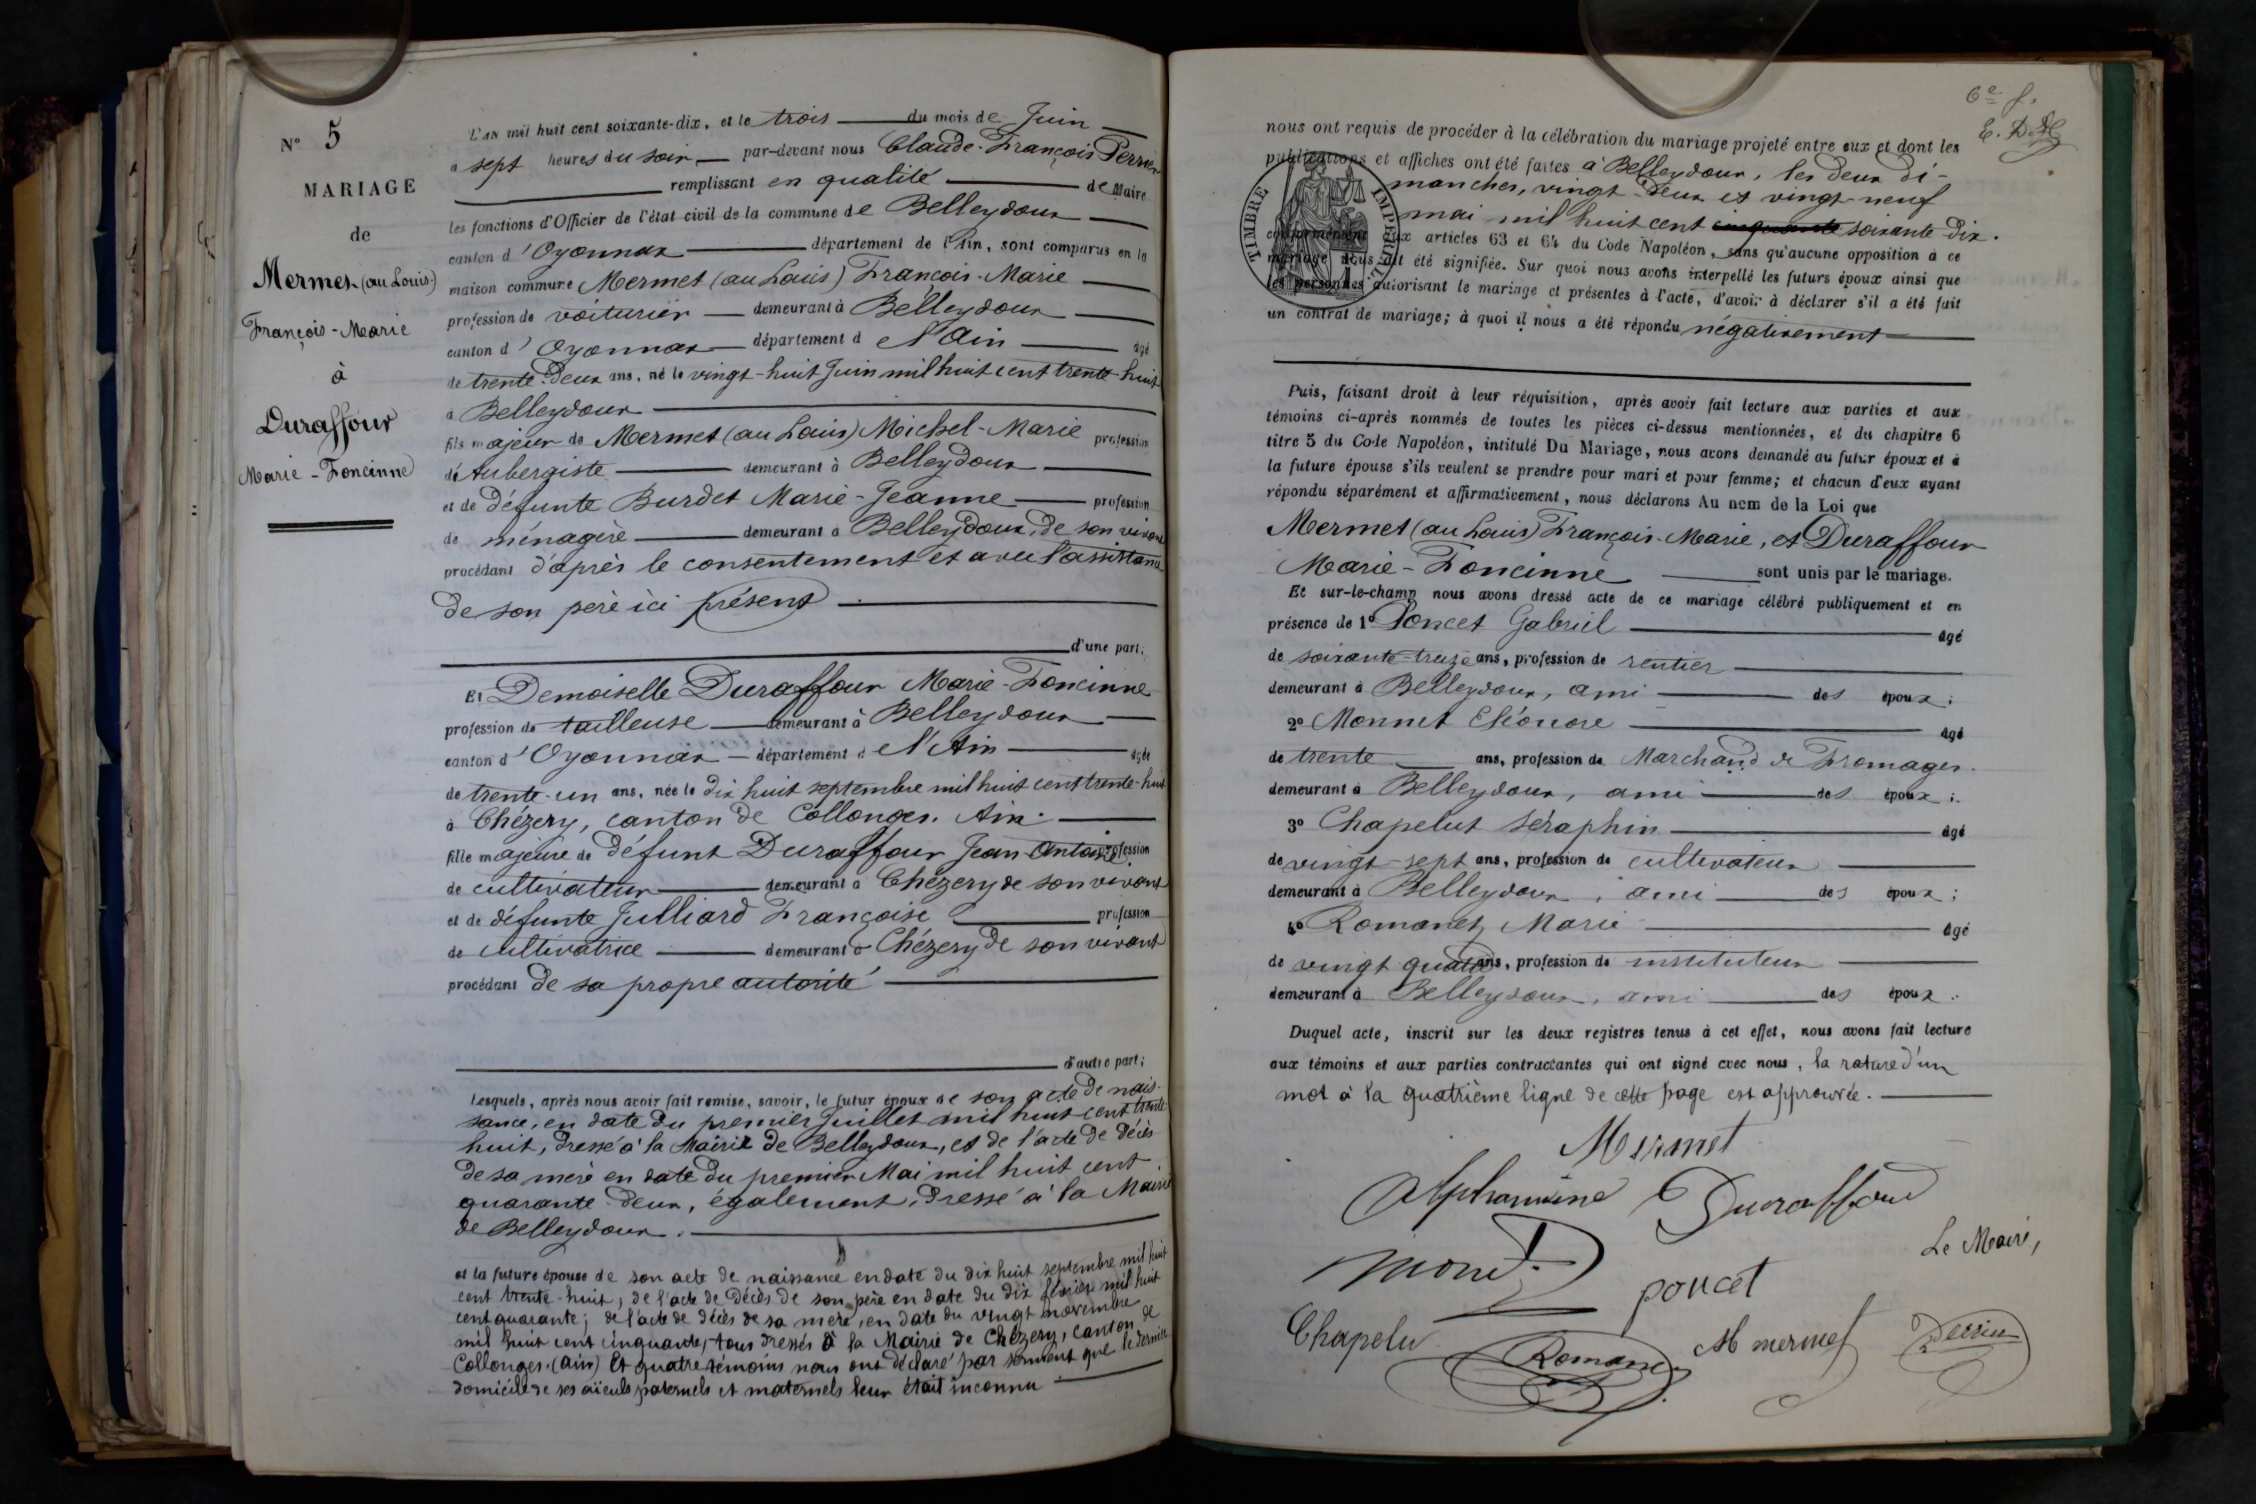 N° 5
MARIAGE
de
Mermet (au Louis)
François-Marie
à
Duraffour
Marie-Foncinne
L'AN mil huit cent soixante-dix, et le trois du mois de Juin
à sept heures du soir par-devant nous Claude-François Perrier
remplissant en qualité de Maire
les fonctions d'Officier de l'état civil de la commune de Belleydoux
canton d'Oyonnax département de l'Ain, sont comparus en la
maison commune Mermet (au Louis) François-Marie
profession de voiturier demeurant à Belleydoux
canton d'Oyonnax département d l'Ain âgé
de trente-deux ans, né le vingt-huit Juin mil huit cent trente-huit
à Belleydoux
fils majeur de Mermet (au Louis) Michel-Marie profession
d'Aubergiste demeurant à Belleydoux
et de défunte Burdet Marie-Jeanne profession
de ménagère demeurant à Belleydoux, de son vivant
procédant d'après le consentement et avec l'assistance
de son père ici présent
d'une part;
Et Demoiselle Duraffour Marie-Foncinne
profession de tailleuse demeurant à Belleydoux
canton d'Oyonnax département d l'Ain âgée
de trente-un ans, née le dix huit septembre mil huit cent trente-huit
à Chézery, canton de Collonges. Ain.
fille majeure de défunt Duraffour Jean Antoine profession
de cultivateur demeurant à Chézery de son vivant
et de défunte Julliard Françoise profession
de cultivatrice demeurant à Chézery de son vivant
procédant de sa propre autorité
d'autre part;
Lesquels, après nous avoir fait remise, savoir, le futur époux de son acte de nais-
sance, en date du premier Juillet mil huit cent trente-
huit, dressé à la Mairie de Belleydoux, et de l'acte de décès
de sa mère en date du premier Mai mil huit cent
quarante-deux, également dressé à la Mairie
de Belleydoux.
et la future épouse de son acte de naissance en date du dix huit septembre mil huit
cent trente-huit; de l'acte de décès de son père en date du dix février mil huit
cent quarante; de l'acte de décès de sa mère, en date du vingt novembre
mil huit cent cinquante, tous dressés à la Mairie de Chézery, canton de
Collonges. (Ain) Et quatre témoins nous ont déclaré par serment que le dernier
domicile de ses aïeuls paternels et maternels leur était inconnu
6e f.
nous ont requis de procéder à la célébration du mariage projeté entre eux et dont les
publications et affiches ont été faites à Belleydoux, les deux di-
manches, vingt-deux et vingt-neuf
mai mil huit cent cinquante soixante-dix.
TIMBRE IMPÉRIAL
conformément aux articles 63 et 64 du Code Napoléon, sans qu'aucune opposition à ce
mariage nous ait été signifiée. Sur quoi nous avons interpellé les futurs époux ainsi que
les personnes autorisant le mariage et présentes à l'acte, d'avoir à déclarer s'il a été fait
un contrat de mariage; à quoi il nous a été répondu négativement
Puis, faisant droit à leur réquisition, après avoir fait lecture aux parties et aux
témoins ci-après nommés de toutes les pièces ci-dessus mentionnées, et du chapitre 6
titre 5 du Code Napoléon, intitulé Du Mariage, nous avons demandé au futur époux et à
la future épouse s'ils veulent se prendre pour mari et pour femme; et chacun d'eux ayant
répondu séparément et affirmativement, nous déclarons Au nom de la Loi que
Mermet (au Louis) François-Marie, et Duraffour
Marie-Foncinne sont unis par le mariage.
Et sur-le-champ nous avons dressé acte de ce mariage célébré publiquement et en
présence de 1° Poncet Gabriel âgé
de soixante-treize ans, profession de rentier
demeurant à Belleydoux, ami des époux;
2° Monnet Eléonore âgé
de trente ans, profession de Marchand de Fromages
demeurant à Belleydoux, ami des époux;
3° Chapelut Séraphin âgé
de vingt-sept ans, profession de cultivateur
demeurant à Belleydoux, ami des époux;
4° Romanet Marie âgé
de vingt quatre ans, profession de instituteur
demeurant à Belleydoux, ami des époux.
Duquel acte, inscrit sur les deux registres tenus à cet effet, nous avons fait lecture
aux témoins et aux parties contractantes qui ont signé avec nous, la rature d'un
mot à la quatrième ligne de cette page est approuvée.
Mermet
Duraffour
Le Maire,
poncet
Chapelu
Romanet
M mermet
Perrier